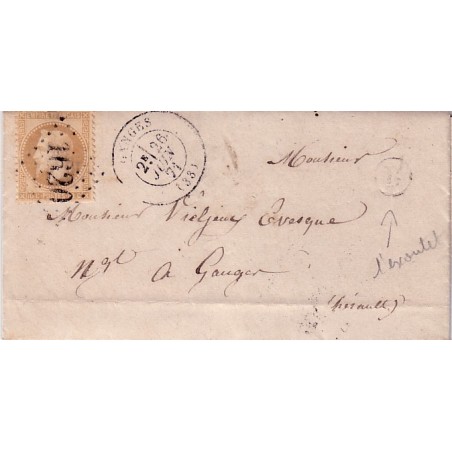 1620
GANGES
2E
26
JUIN
71
(33)
Monsieur
Monsieur Vieljeux Evesque
Ngt à Ganges
(hérault)
l'exoulet